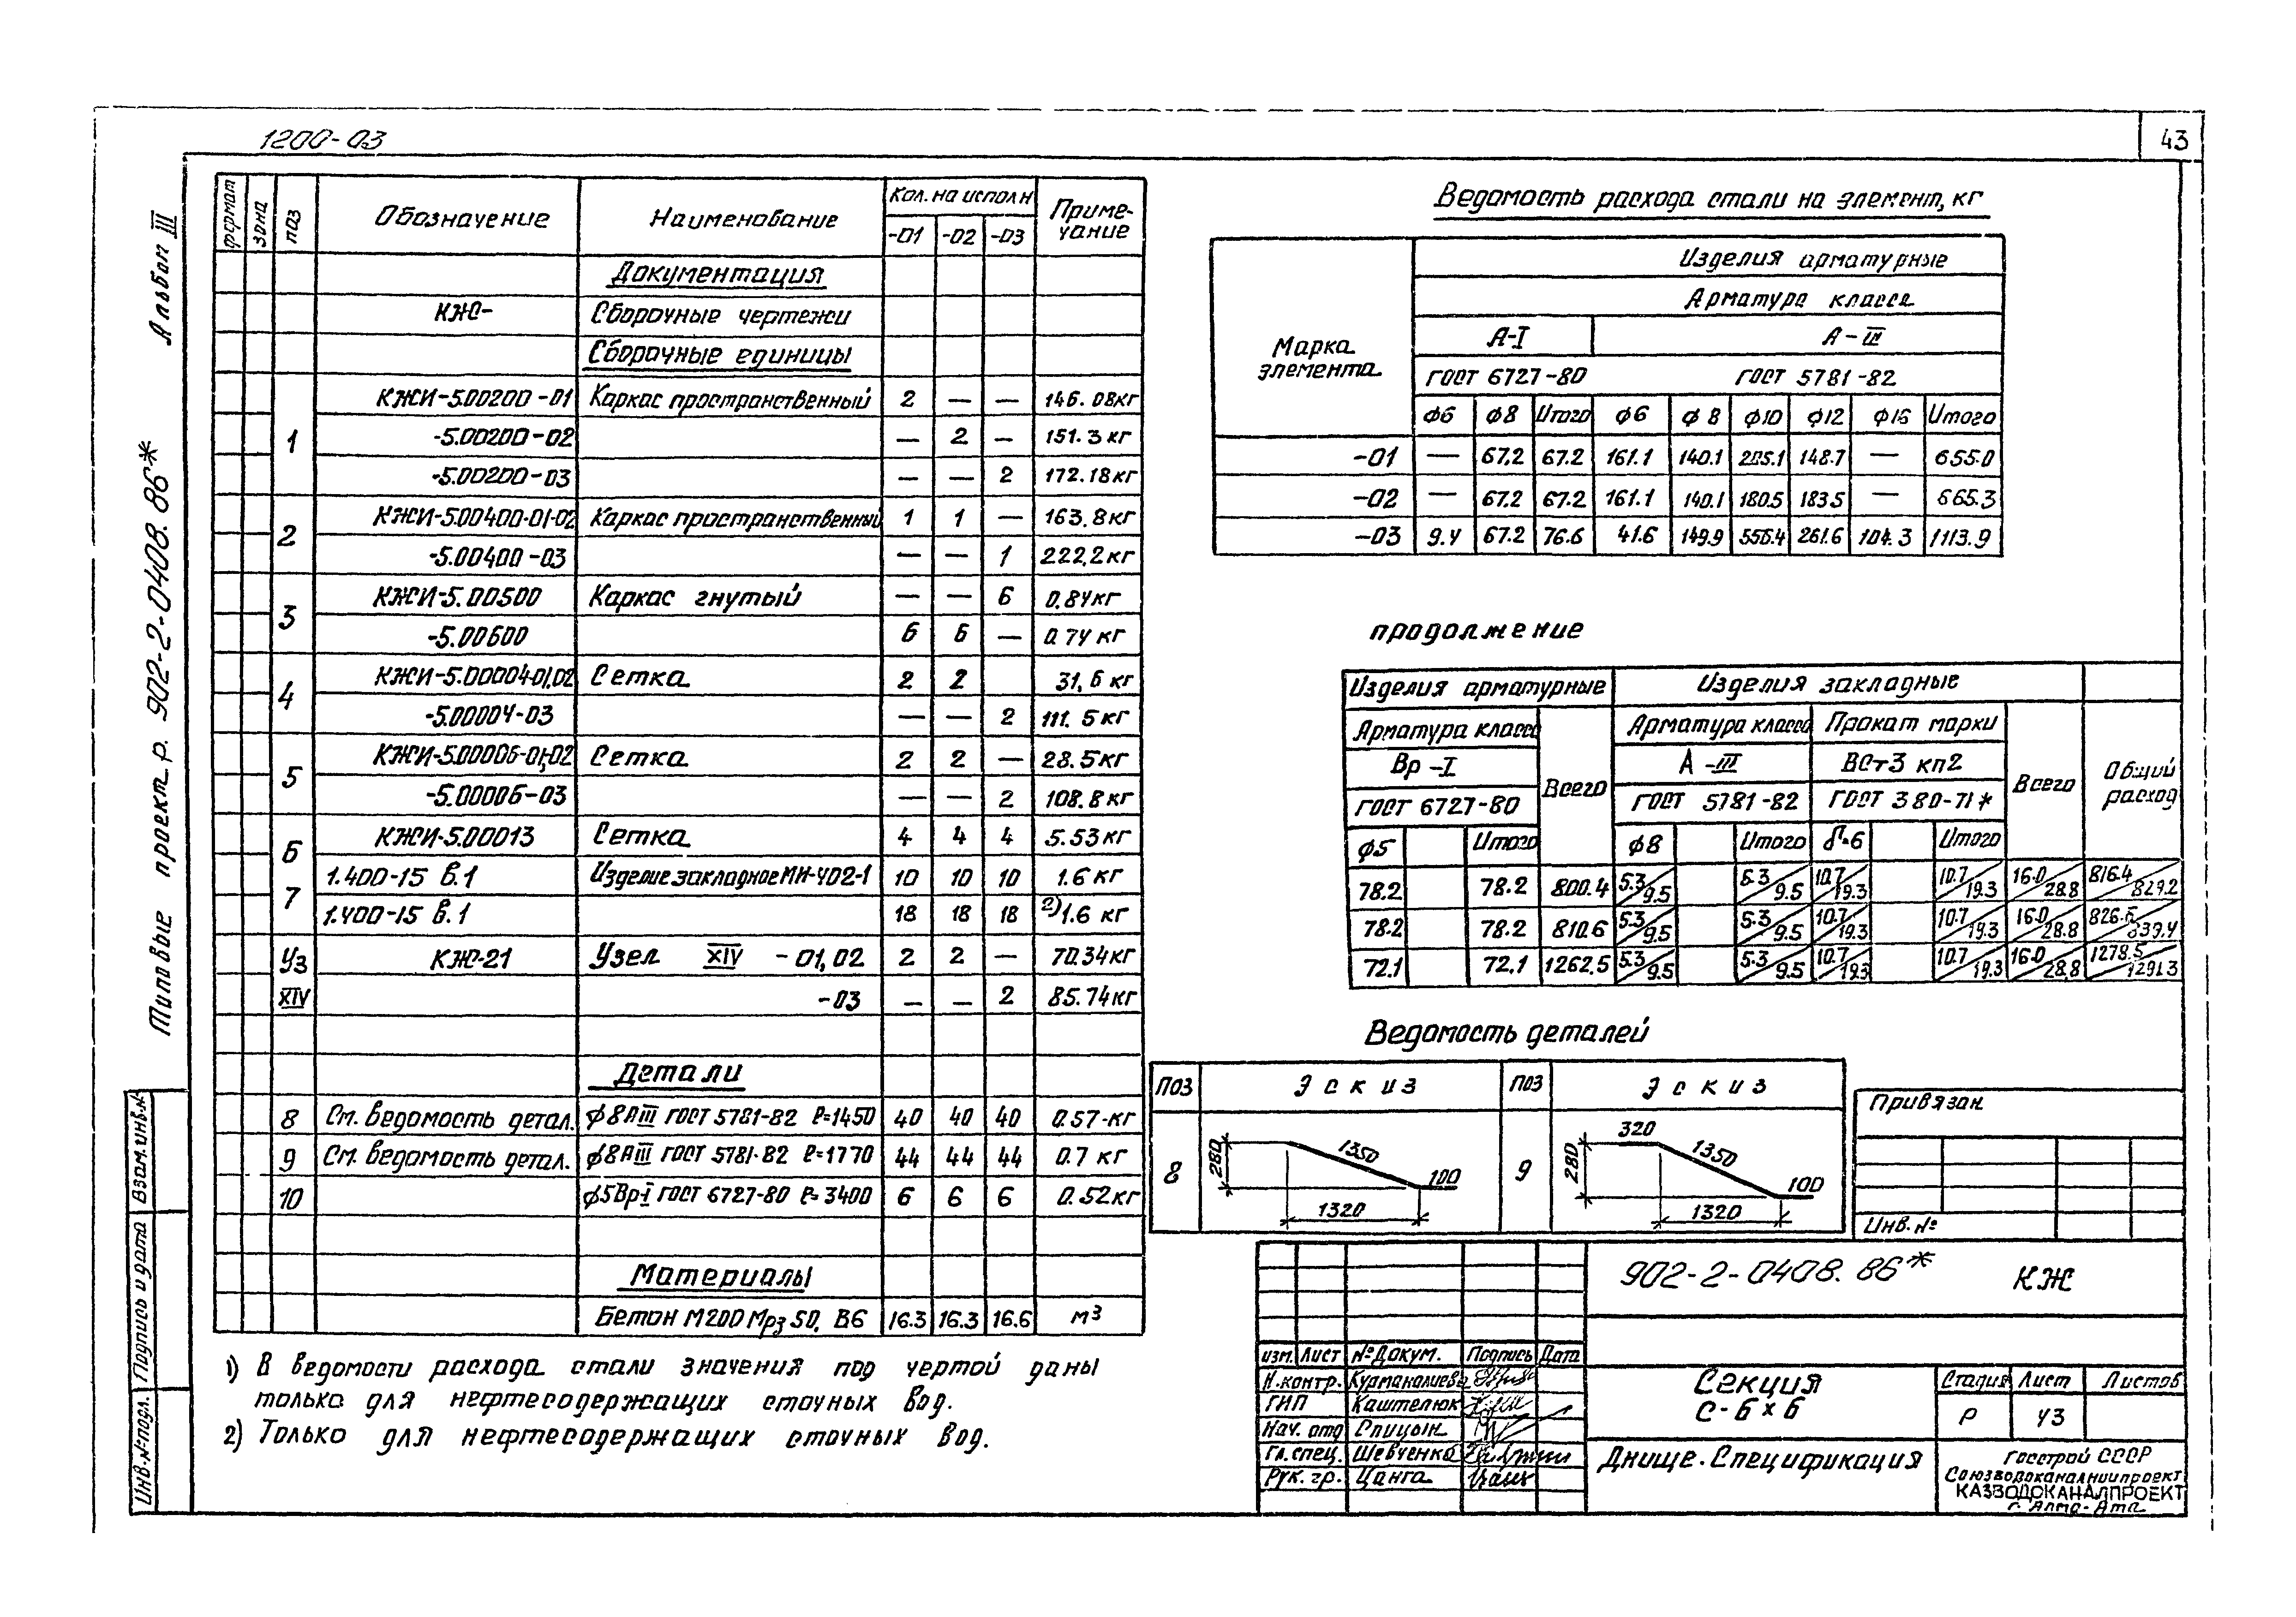 1200-03
43
Альбом III
Типовые проект.р. 902-2-0408.86*
формат зона поз Обозначение Наименование Кол. на исполн Приме-чание
-01 -02 -03
Документация
КЖ- Сборочные чертежи
Сборочные единицы
1 КЖИ-5.00200-01 Каркас пространственный 2 — — 146.08кг
-5.00200-02 — 2 — 151.3кг
-5.00200-03 — — 2 172.18кг
2 КЖИ-5.00400-01-02 Каркас пространственный 1 1 — 163.8кг
-5.00400-03 — — 1 222,2кг
3 КЖИ-5.00500 Каркас гнутый — — 6 0.84кг
-5.00600 6 6 — 0.74 кг
4 КЖИ-5.00004-01,02 Сетка 2 2 31,6 кг
-5.00004-03 — — 2 111.5кг
5 КЖИ-5.00006-01,02 Сетка 2 2 — 28.5кг
-5.00006-03 — — 2 108.8кг
6 КЖИ-5.00013 Сетка 4 4 4 5.53кг
7 1.400-15 в.1 Изделие закладное МН-402-1 10 10 10 1.6 кг
1.400-15 в.1 18 18 18 2) 1.6 кг
Уз КЖ-21 Узел XIV -01,02 2 2 — 70.34кг
XIV -03 — — 2 85.74кг
Детали
8 См. ведомость детал. ф8АIII ГОСТ 5781-82 ℓ=1450 40 40 40 0.57-кг
9 См. ведомость детал. ф8АIII ГОСТ 5781-82 ℓ=1770 44 44 44 0.7 кг
10 ф5Вр-I ГОСТ 6727-80 ℓ=3400 6 6 6 0.52кг
Материалы
Бетон М200 Мрз 50, В6 16.3 16.3 16.6 м3
1) В ведомости расхода стали значения под чертой даны
только для нефтесодержащих сточных вод.
2) Только для нефтесодержащих сточных вод.
Ведомость расхода стали на элемент, кг
Марка элемента
Изделия арматурные
Арматура класса
А-I А-III
ГОСТ 6727-80 ГОСТ 5781-82
ф6 ф8 Итого ф6 ф8 ф10 ф12 ф16 Итого
-01 — 67.2 67.2 161.1 140.1 205.1 148.7 — 655.0
-02 — 67.2 67.2 161.1 140.1 180.5 183.5 — 665.3
-03 9.4 67.2 76.6 41.6 149.9 556.4 261.6 104.3 1113.9
продолжение
Изделия арматурные Изделия закладные
Арматура класса Всего Арматура класса Прокат марки Всего Общий расход
Вр-I А-III ВСт3 кп2
ГОСТ 6727-80 ГОСТ 5781-82 ГОСТ 380-71*
ф5 Итого ф8 Итого δ=6 Итого
78.2 78.2 800.4 5.3/9.5 5.3/9.5 10.7/19.3 10.7/19.3 16.0/28.8 816.4/829.2
78.2 78.2 810.6 5.3/9.5 5.3/9.5 10.7/19.3 10.7/19.3 16.0/28.8 826.6/839.4
72.1 72.1 1262.5 5.3/9.5 5.3/9.5 10.7/19.3 10.7/19.3 16.0/28.8 1278.5/1291.3
Ведомость деталей
поз Эскиз поз Эскиз
8 280 1350 100 1320
9 320 280 1350 100 1320
Привязан
Инв.№
902-2-0408.86* КЖ
изм. Лист № Докум. Подпись Дата
Н.контр. Курманалиева
ГИП Каштелюк
Нач. отд Спицын
Гл.спец. Шевченко
Рук. гр. Цанга
Секция
С-6х6
Стадия Лист Листов
Р 43
Днище. Спецификация
Госстрой СССР
Союзводоканалниипроект
КАЗВОДОКАНАЛПРОЕКТ
г. Алма-Ата
Взам.инв.№
Подпись и дата
Инв.№подл.